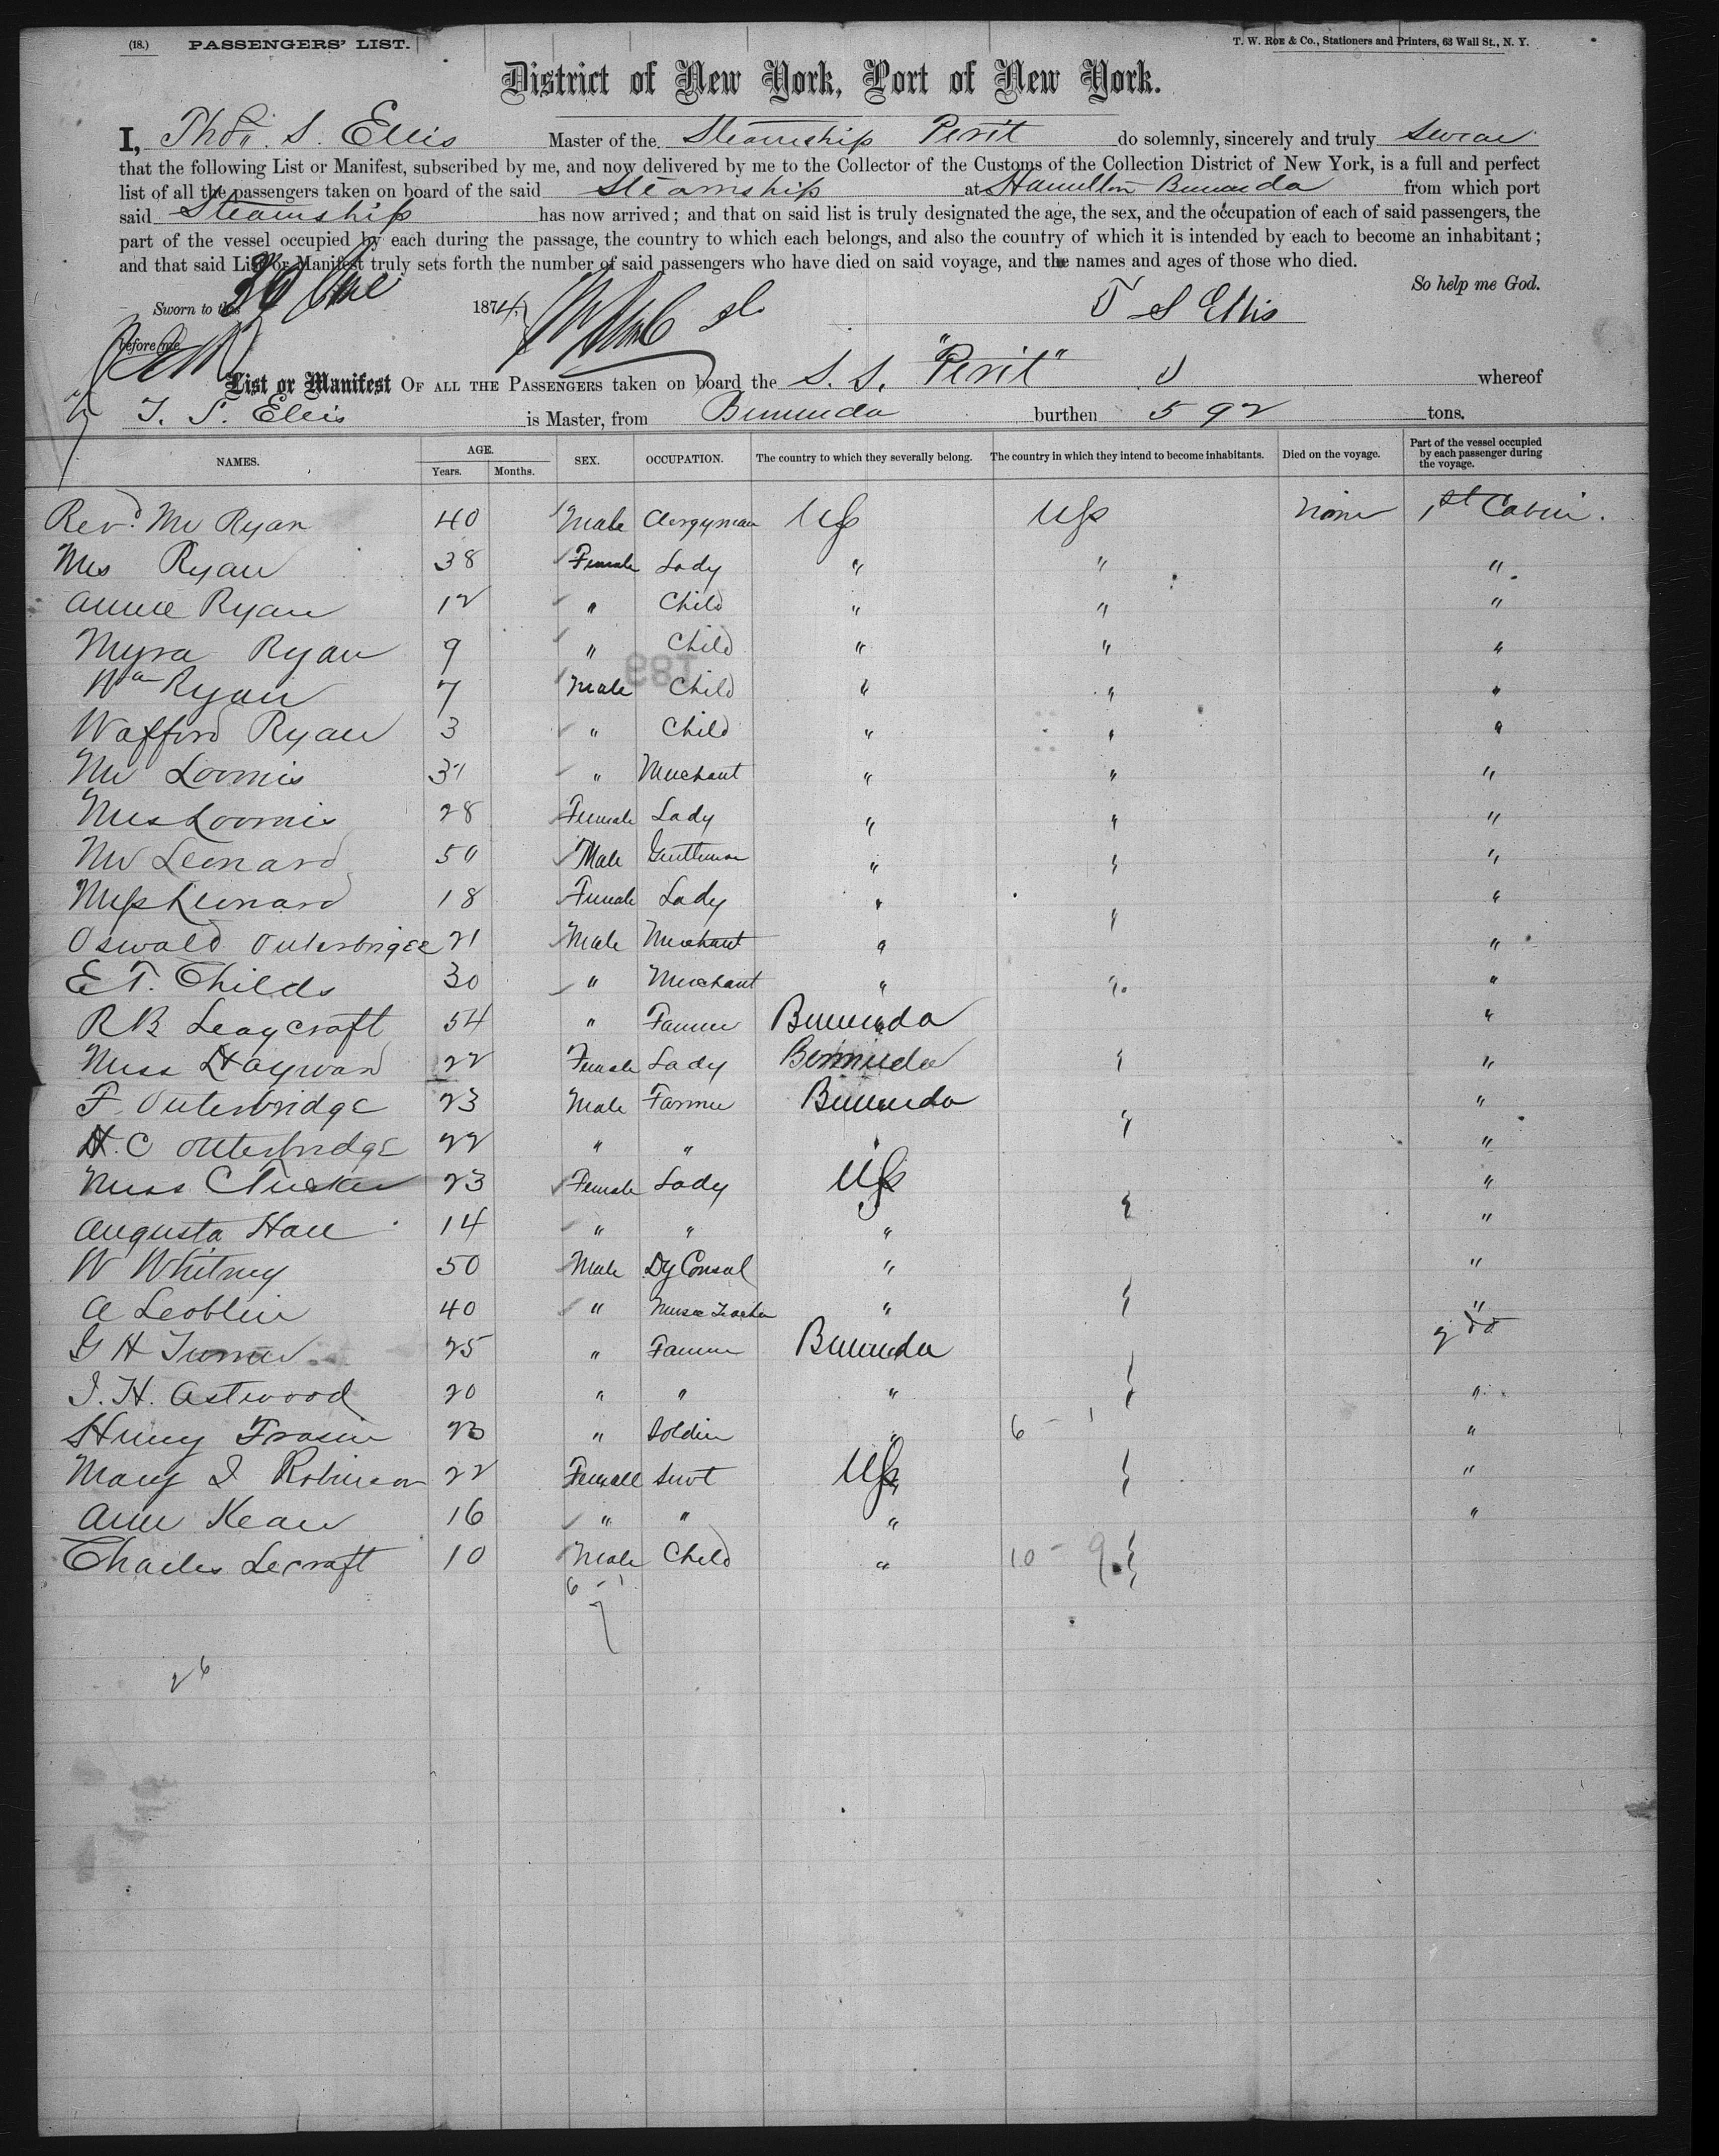 (18.) PASSENGERS' LIST. T. W. ROE & Co., Stationers and Printers, 63 Wall St., N. Y.
District of New York, Port of New York.
I, Thos. S. Ellis Master of the Steamship Perit do solemnly, sincerely and truly swear
that the following List or Manifest, subscribed by me, and now delivered by me to the Collector of the Customs of the Collection District of New York, is a full and perfect
list of all the passengers taken on board of the said Steamship at Hamilton Bermuda from which port
said Steamship has now arrived; and that on said list is truly designated the age, the sex, and the occupation of each of said passengers, the
part of the vessel occupied by each during the passage, the country to which each belongs, and also the country of which it is intended by each to become an inhabitant;
and that said List or Manifest truly sets forth the number of said passengers who have died on said voyage, and the names and ages of those who died.
So help me God.
Sworn to this 30 1874 T S Ellis
Before me
List or Manifest OF ALL THE PASSENGERS taken on board the S. S. "Perit" whereof
T. S. Ellis is Master, from Bermuda burthen 592 tons.
NAMES. AGE. Years. Months. SEX. OCCUPATION. The country to which they severally belong. The country in which they intend to become inhabitants. Died on the voyage. Part of the vessel occupied by each passenger during the voyage.
Revd. Mr Ryan 40 Male Clergyman US US None 1st Cabin.
Mrs Ryan 38 Female Lady " " "
Annie Ryan 12 " Child " " "
Myra Ryan 9 " Child " " "
Wm Ryan 7 Male Child " " "
Wafford Ryan 3 " Child " " "
Mr Loomis 31 " Merchant " " "
Mrs Loomis 28 Female Lady " " "
Mr Leonard 50 Male Gentleman " " "
Miss Leonard 18 Female Lady " " "
Oswald Outerbridge 21 Male Merchant " "
E T. Childs 30 " Merchant " " "
R B Leaycraft 54 " Farmer Bermuda "
Miss Hayward 22 Female Lady Bermuda " "
F. Outerbridge 23 Male Farmer Bermuda " "
H. C Outerbridge 22 " " " "
Miss C Tucker 23 Female Lady US "
Augusta Hall 14 " " " " "
W Whitney 50 Male Dy Consul " "
A Leoblin 40 " Music Teacher " " "
G H Turner 25 " Farmer Bermuda 2 do
J. H. Astwood 20 " " " " "
Henry Frasier 23 " Soldier " 6 - 1 "
Mary J Robinson 22 Female Servt US " "
Ann Kean 16 " " " "
Charles Lecraft 10 Male Child " 10 - 9
6 - 1
7
26